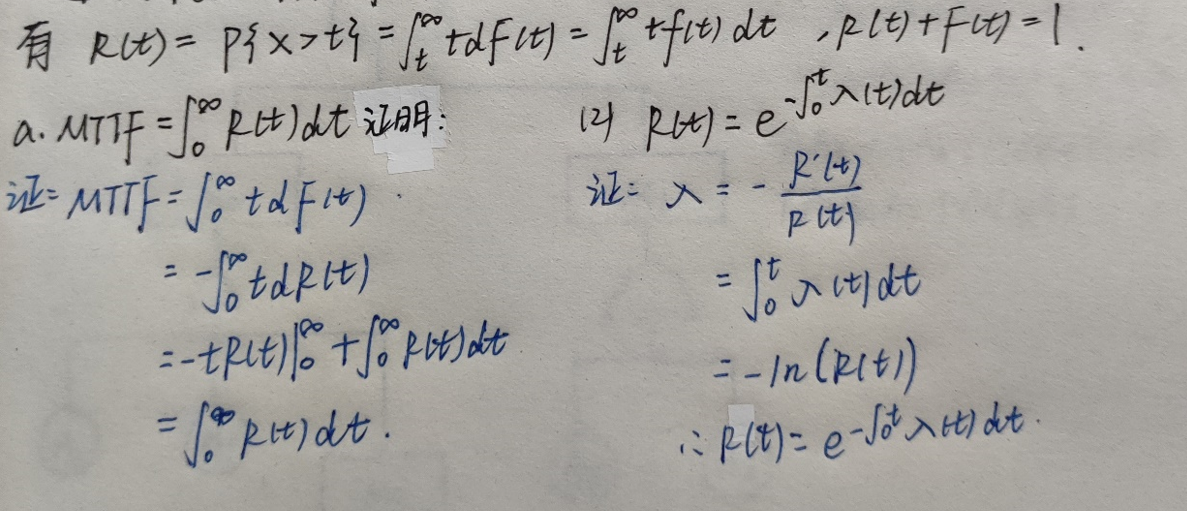 有 R(t) = P{x>t} = ∫_t^∞ t dF(t) = ∫_t^∞ t f(t) dt , R(t) + F(t) = 1.
a. MTTF = ∫_0^∞ R(t) dt 证明:
证: MTTF = ∫_0^∞ t dF(t)
= -∫_0^∞ t dR(t)
= -tR(t)|_0^∞ + ∫_0^∞ R(t) dt
= ∫_0^∞ R(t) dt .
(2) R(t) = e^{-∫_0^t λ(t) dt}
证: λ = - R'(t)/R(t)
= ∫_0^t λ(t) dt
= -ln(R(t))
∴ R(t) = e^{-∫_0^t λ(t) dt}.